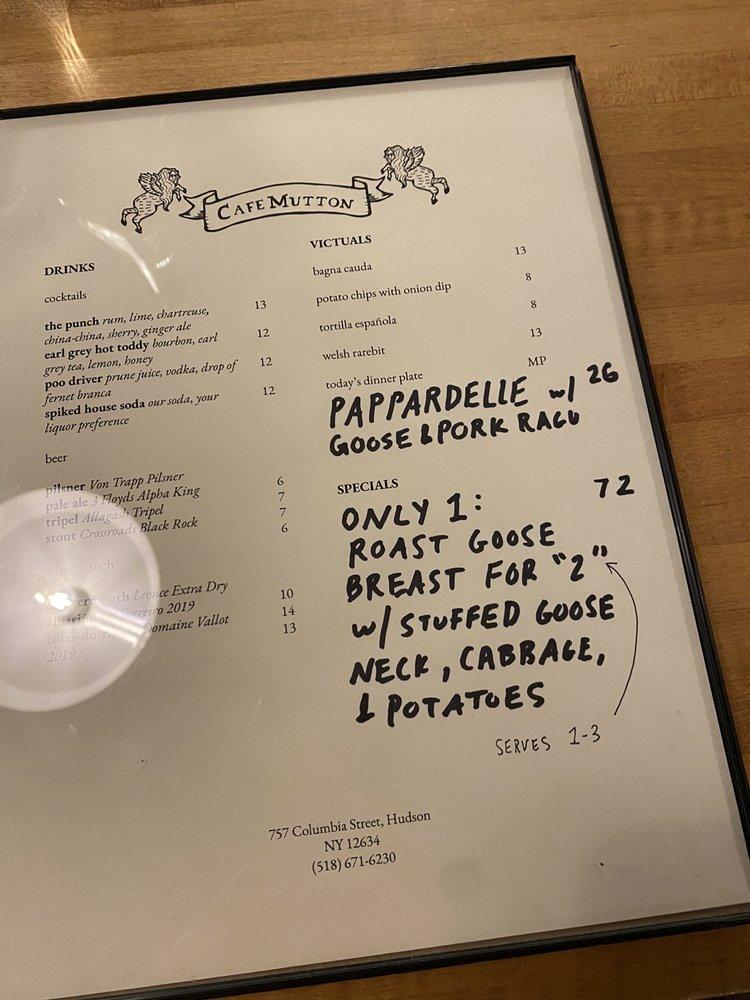 CAFE MUTTON
DRINKS
cocktails
the punch rum, lime, chartreuse, 13
china-china, sherry, ginger ale
earl grey hot toddy bourbon, earl 12
grey tea, lemon, honey
poo driver prune juice, vodka, drop of 12
fernet branca
spiked house soda our soda, your 12
liquor preference
beer
pilsner Von Trapp Pilsner 6
pale ale 3 Floyds Alpha King 7
tripel Allagash Tripel 7
stout Crossroads Black Rock 6
wine & such
Leonce Extra Dry 10
2019 14
Domaine Vallot 13
2019
VICTUALS
bagna cauda 13
potato chips with onion dip 8
tortilla española 8
welsh rarebit 13
today's dinner plate MP
PAPPARDELLE w/ 26
GOOSE & PORK RAGU
SPECIALS
72
ONLY 1:
ROAST GOOSE
BREAST FOR "2"
w/ STUFFED GOOSE
NECK, CABBAGE,
& POTATOES
SERVES 1-3
757 Columbia Street, Hudson
NY 12634
(518) 671-6230